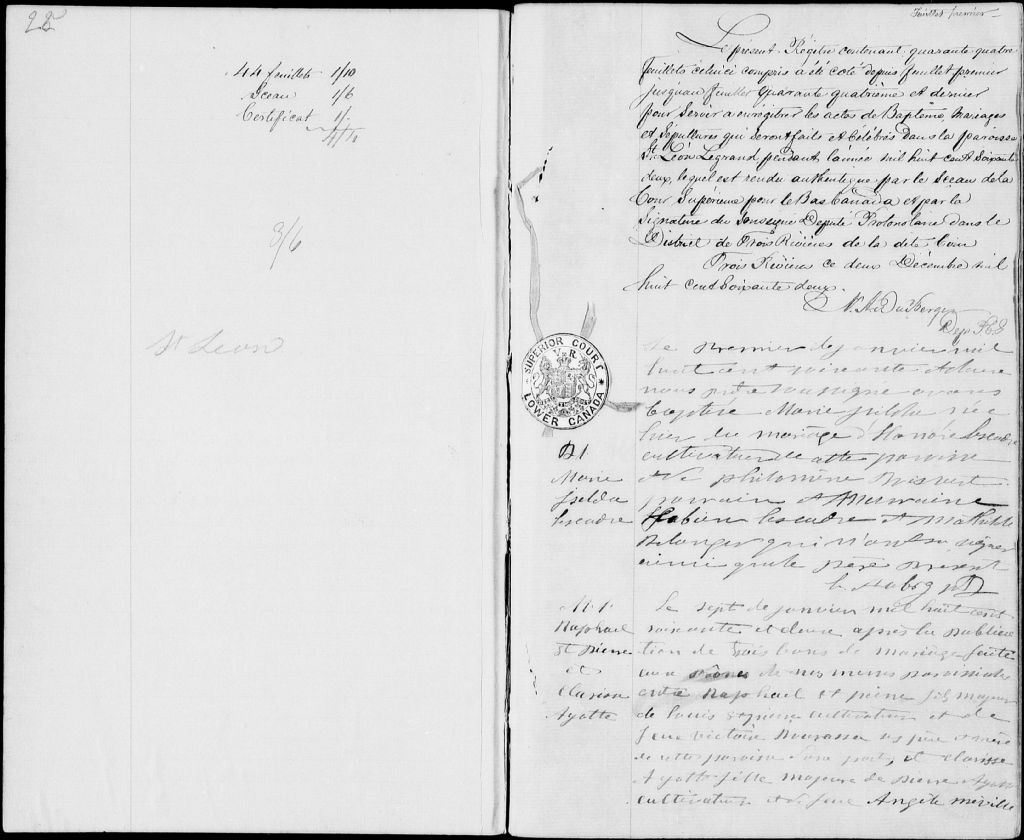 22
44 feuillets 1/10
Sceau 1/6
Certificat 1/.
4/4
3/6
St Leon
Feuillet premier
Le présent Régitre contenant quarante quatre
feuillets celui ci compris a été coté depuis feuillet premier
jusquau feuillet quarante quatrième et dernier
pour servir a enrégitrer les actes de Baptême, Mariages
et Sépultures qui seront faits et célébrés dans la paroisse
St Léon Legrand pendant l'année mil huit cent Soixante
deux, lequel est rendu authentique par le Sceau de la
Cour Supérieure pour le Bas Canada et par la
Signature du Soussigné Député Protonotaire dans le
District de Trois Rivières de la dite Cour
Trois Rivières ce deux Décembre mil
huit cent Soixante deux.
Dep
SUPERIOR COURT
V R
LOWER CANADA
B 1
Marie
Lescadre
Le premier de janvier mil
huit cent soixante et deux
nous prêtre soussigné avons
baptisé Marie née
hier du mariage d'Honoré Lescadre
cultivateur de cette paroisse
et de philomène
parrain et Marraine
Fabien Lescadre et Mathilde
Belanger qui n'ont su signer
ainsi que le père present
M. 1
Raphael
St pierre
et
Clarisse
Ayotte
Le sept de janvier mil huit cent
soixante et deux après la publica
tion de trois bans de mariage faite
aux prônes de nos messes paroissiales
entre Raphael St pierre fils majeur
de Louis St pierre cultivateur et de
feue victoire Bourassa ses père et mère
de cette paroisse d'une part, et Clarisse
Ayotte fille majeure de pierre Ayotte
cultivateur et de feue Angèle miville